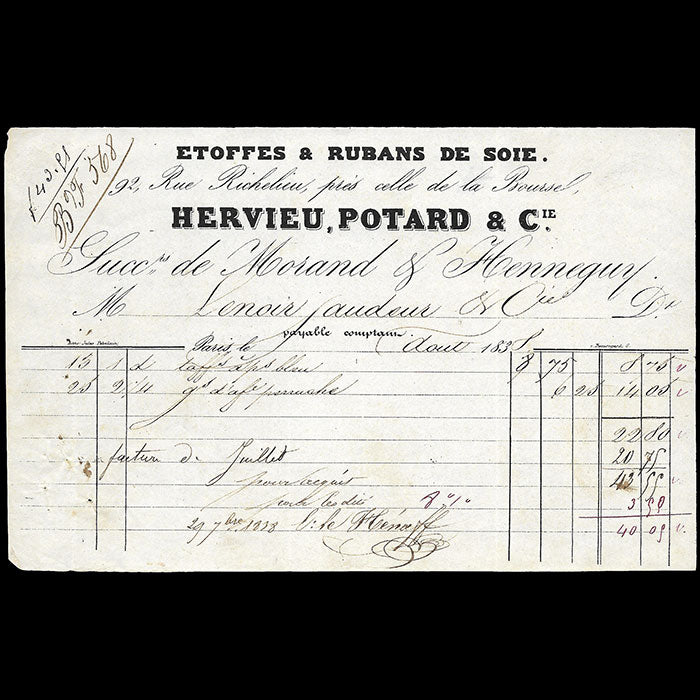 ETOFFES & RUBANS DE SOIE.
92, Rue Richelieu, près celle de la Bourse,
HERVIEU, POTARD & CIE.
Succrs de Morand & Henneguy.
M Lenoir Jaudeur & Cie Dt
payable comptant.
Paris, le Août 1838
13 1 d taffs bleu 8 75 8 75
25 2,4 gs d'afe perruche 6 25 14 05
22 80
facture de Juillet 20 75
43 55
pour acquit
8 % 3 50
29 7bre 1838 40 05
Bon F 568